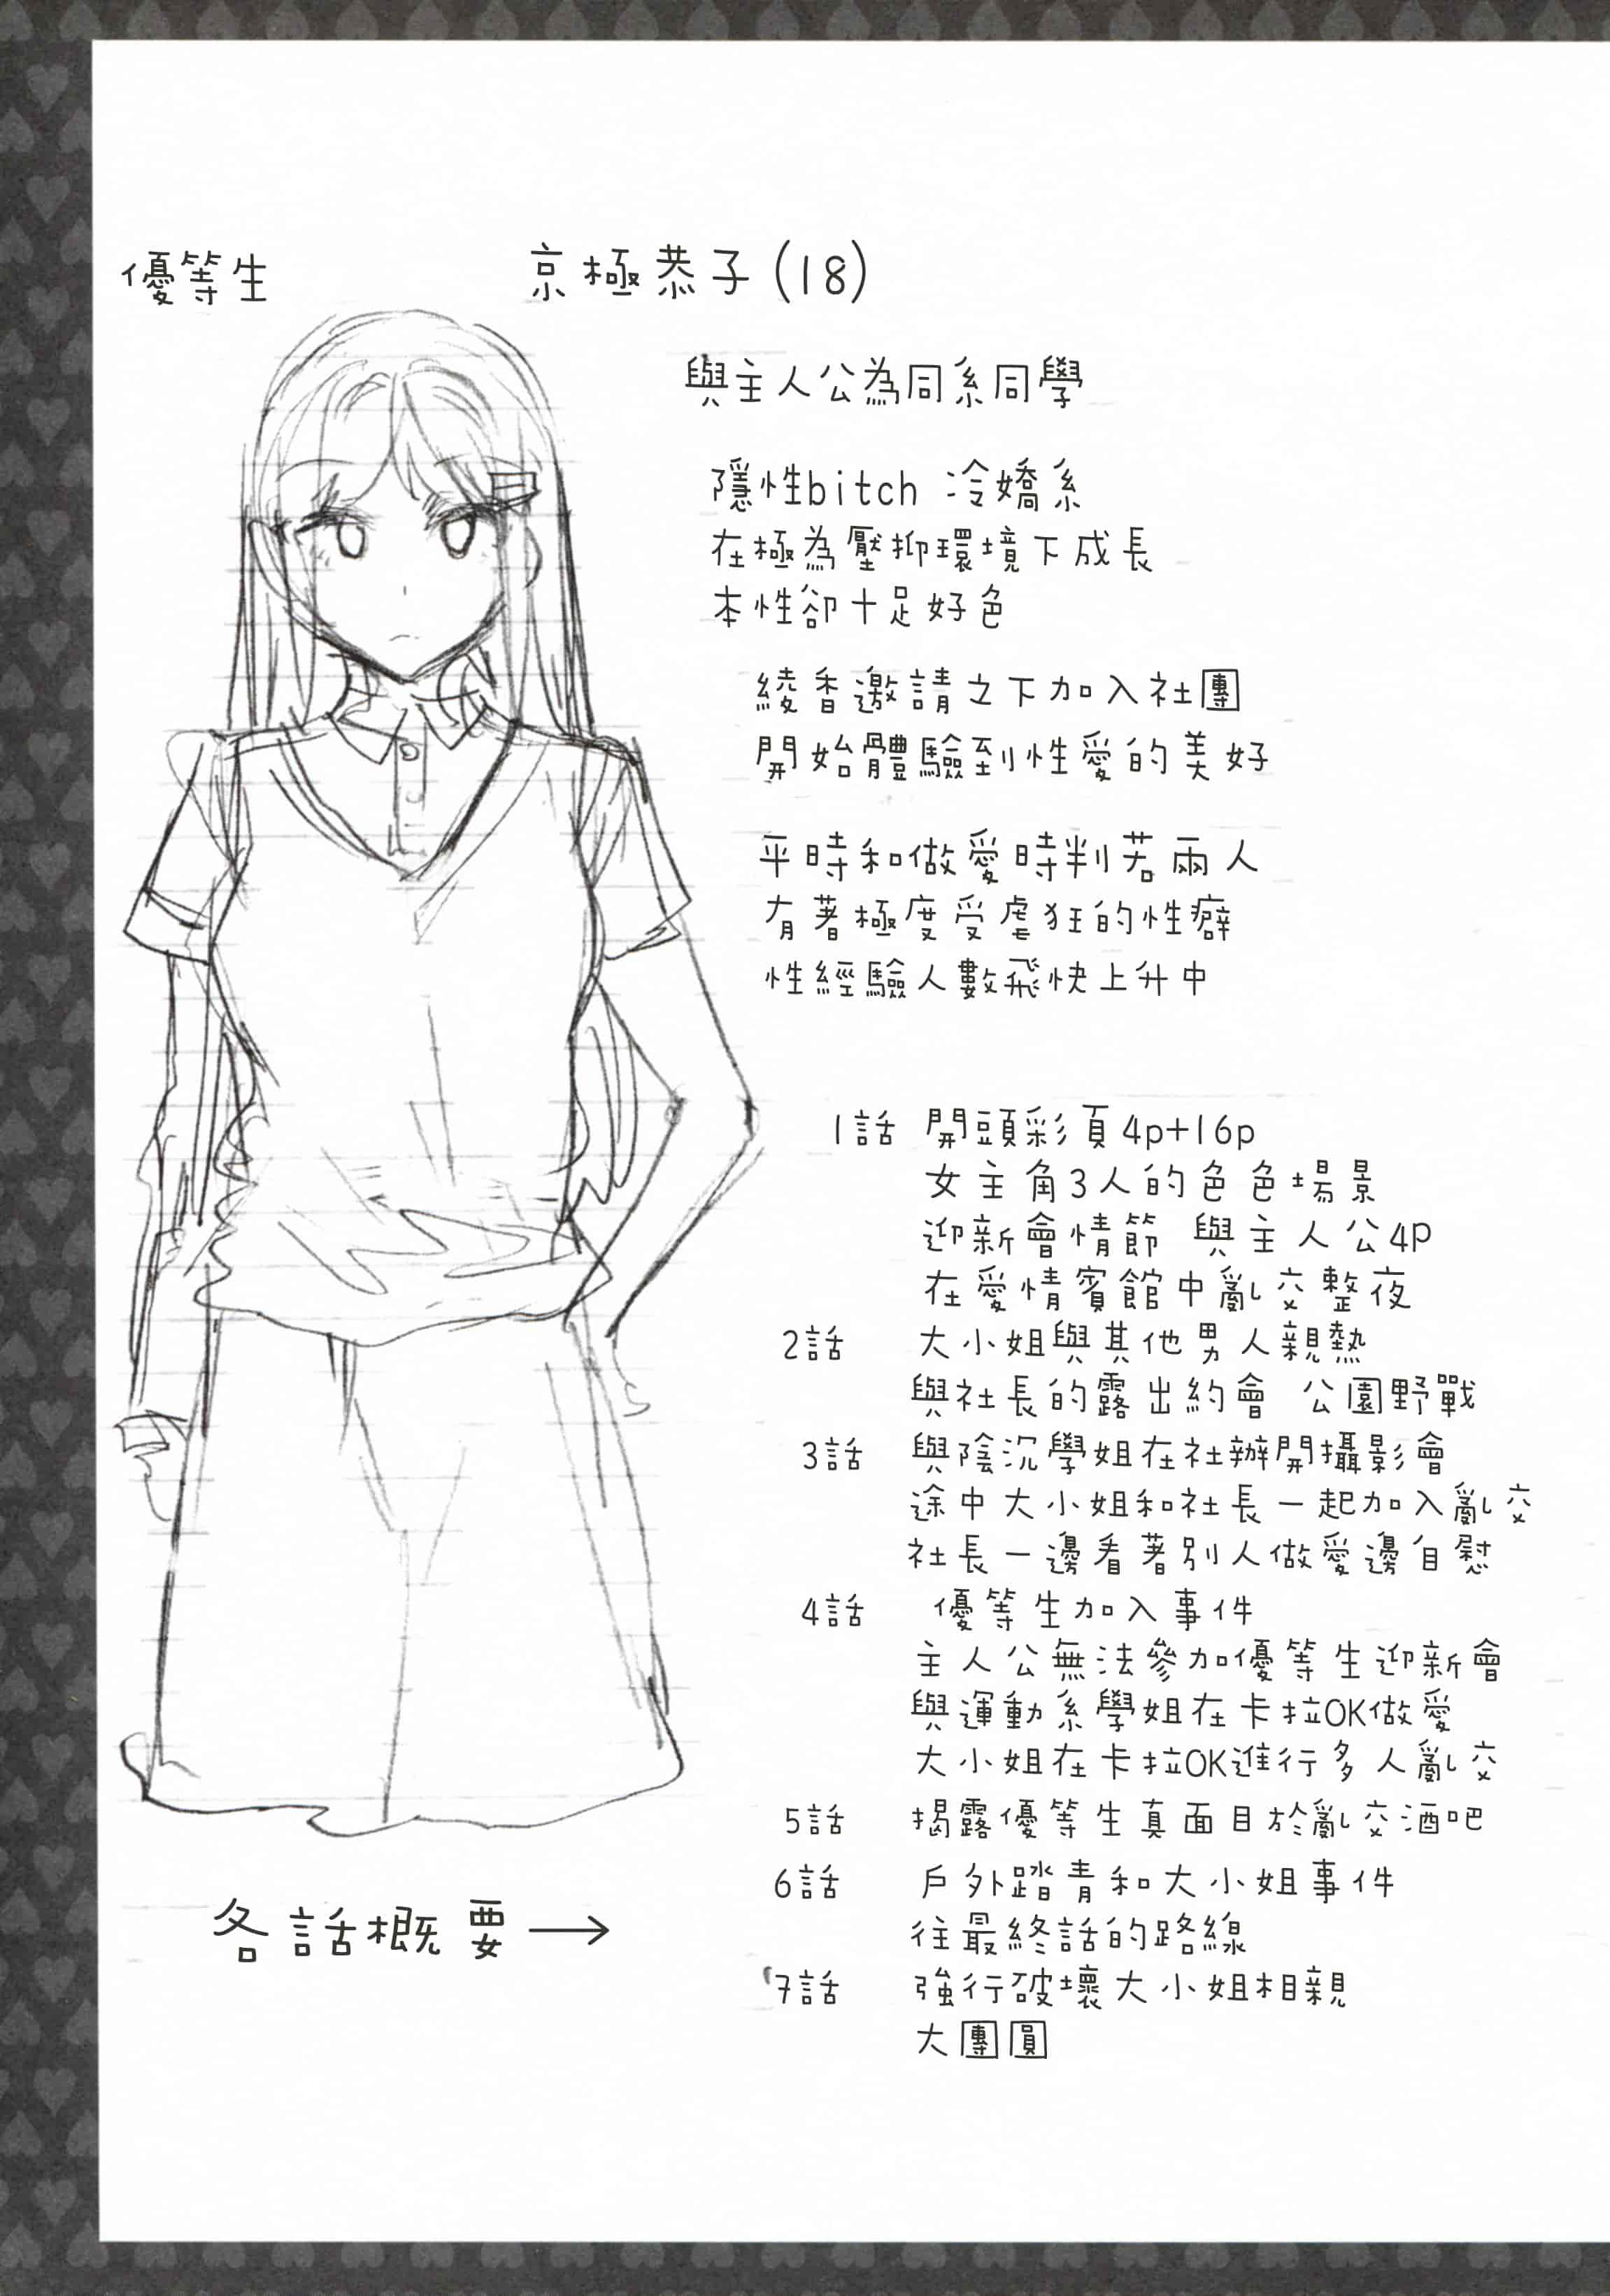 優等生
京極恭子(18)
與主人公為同系同學
隱性bitch 冷嬌系
在極為壓抑環境下成長
本性卻十足好色
綾香邀請之下加入社團
開始體驗到性愛的美好
平時和做愛時判若兩人
有著極度受虐狂的性癖
性經驗人數飛快上升中
1話 開頭彩頁4p+16p
女主角3人的色色場景
迎新會情節 與主人公4P
在愛情賓館中亂交整夜
2話 大小姐與其他男人親熱
與社長的露出約會 公園野戰
3話 與陰沉學姐在社辦開攝影會
途中大小姐和社長一起加入亂交
社長一邊看著別人做愛邊自慰
4話 優等生加入事件
主人公無法參加優等生迎新會
與運動系學姐在卡拉OK做愛
大小姐在卡拉OK進行多人亂交
5話 揭露優等生真面目於亂交酒吧
6話 戶外踏青和大小姐事件
往最終話的路線
7話 強行破壞大小姐相親
大團圓
各話概要→